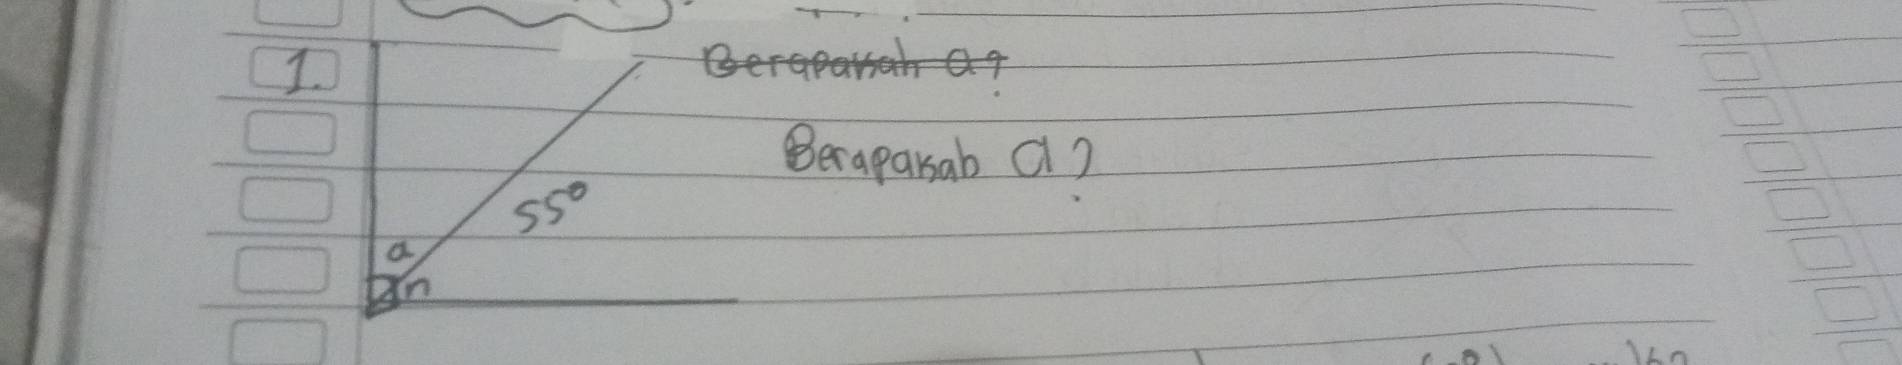 1.
Berapakah a?
Berapakah a?
55°
a
n